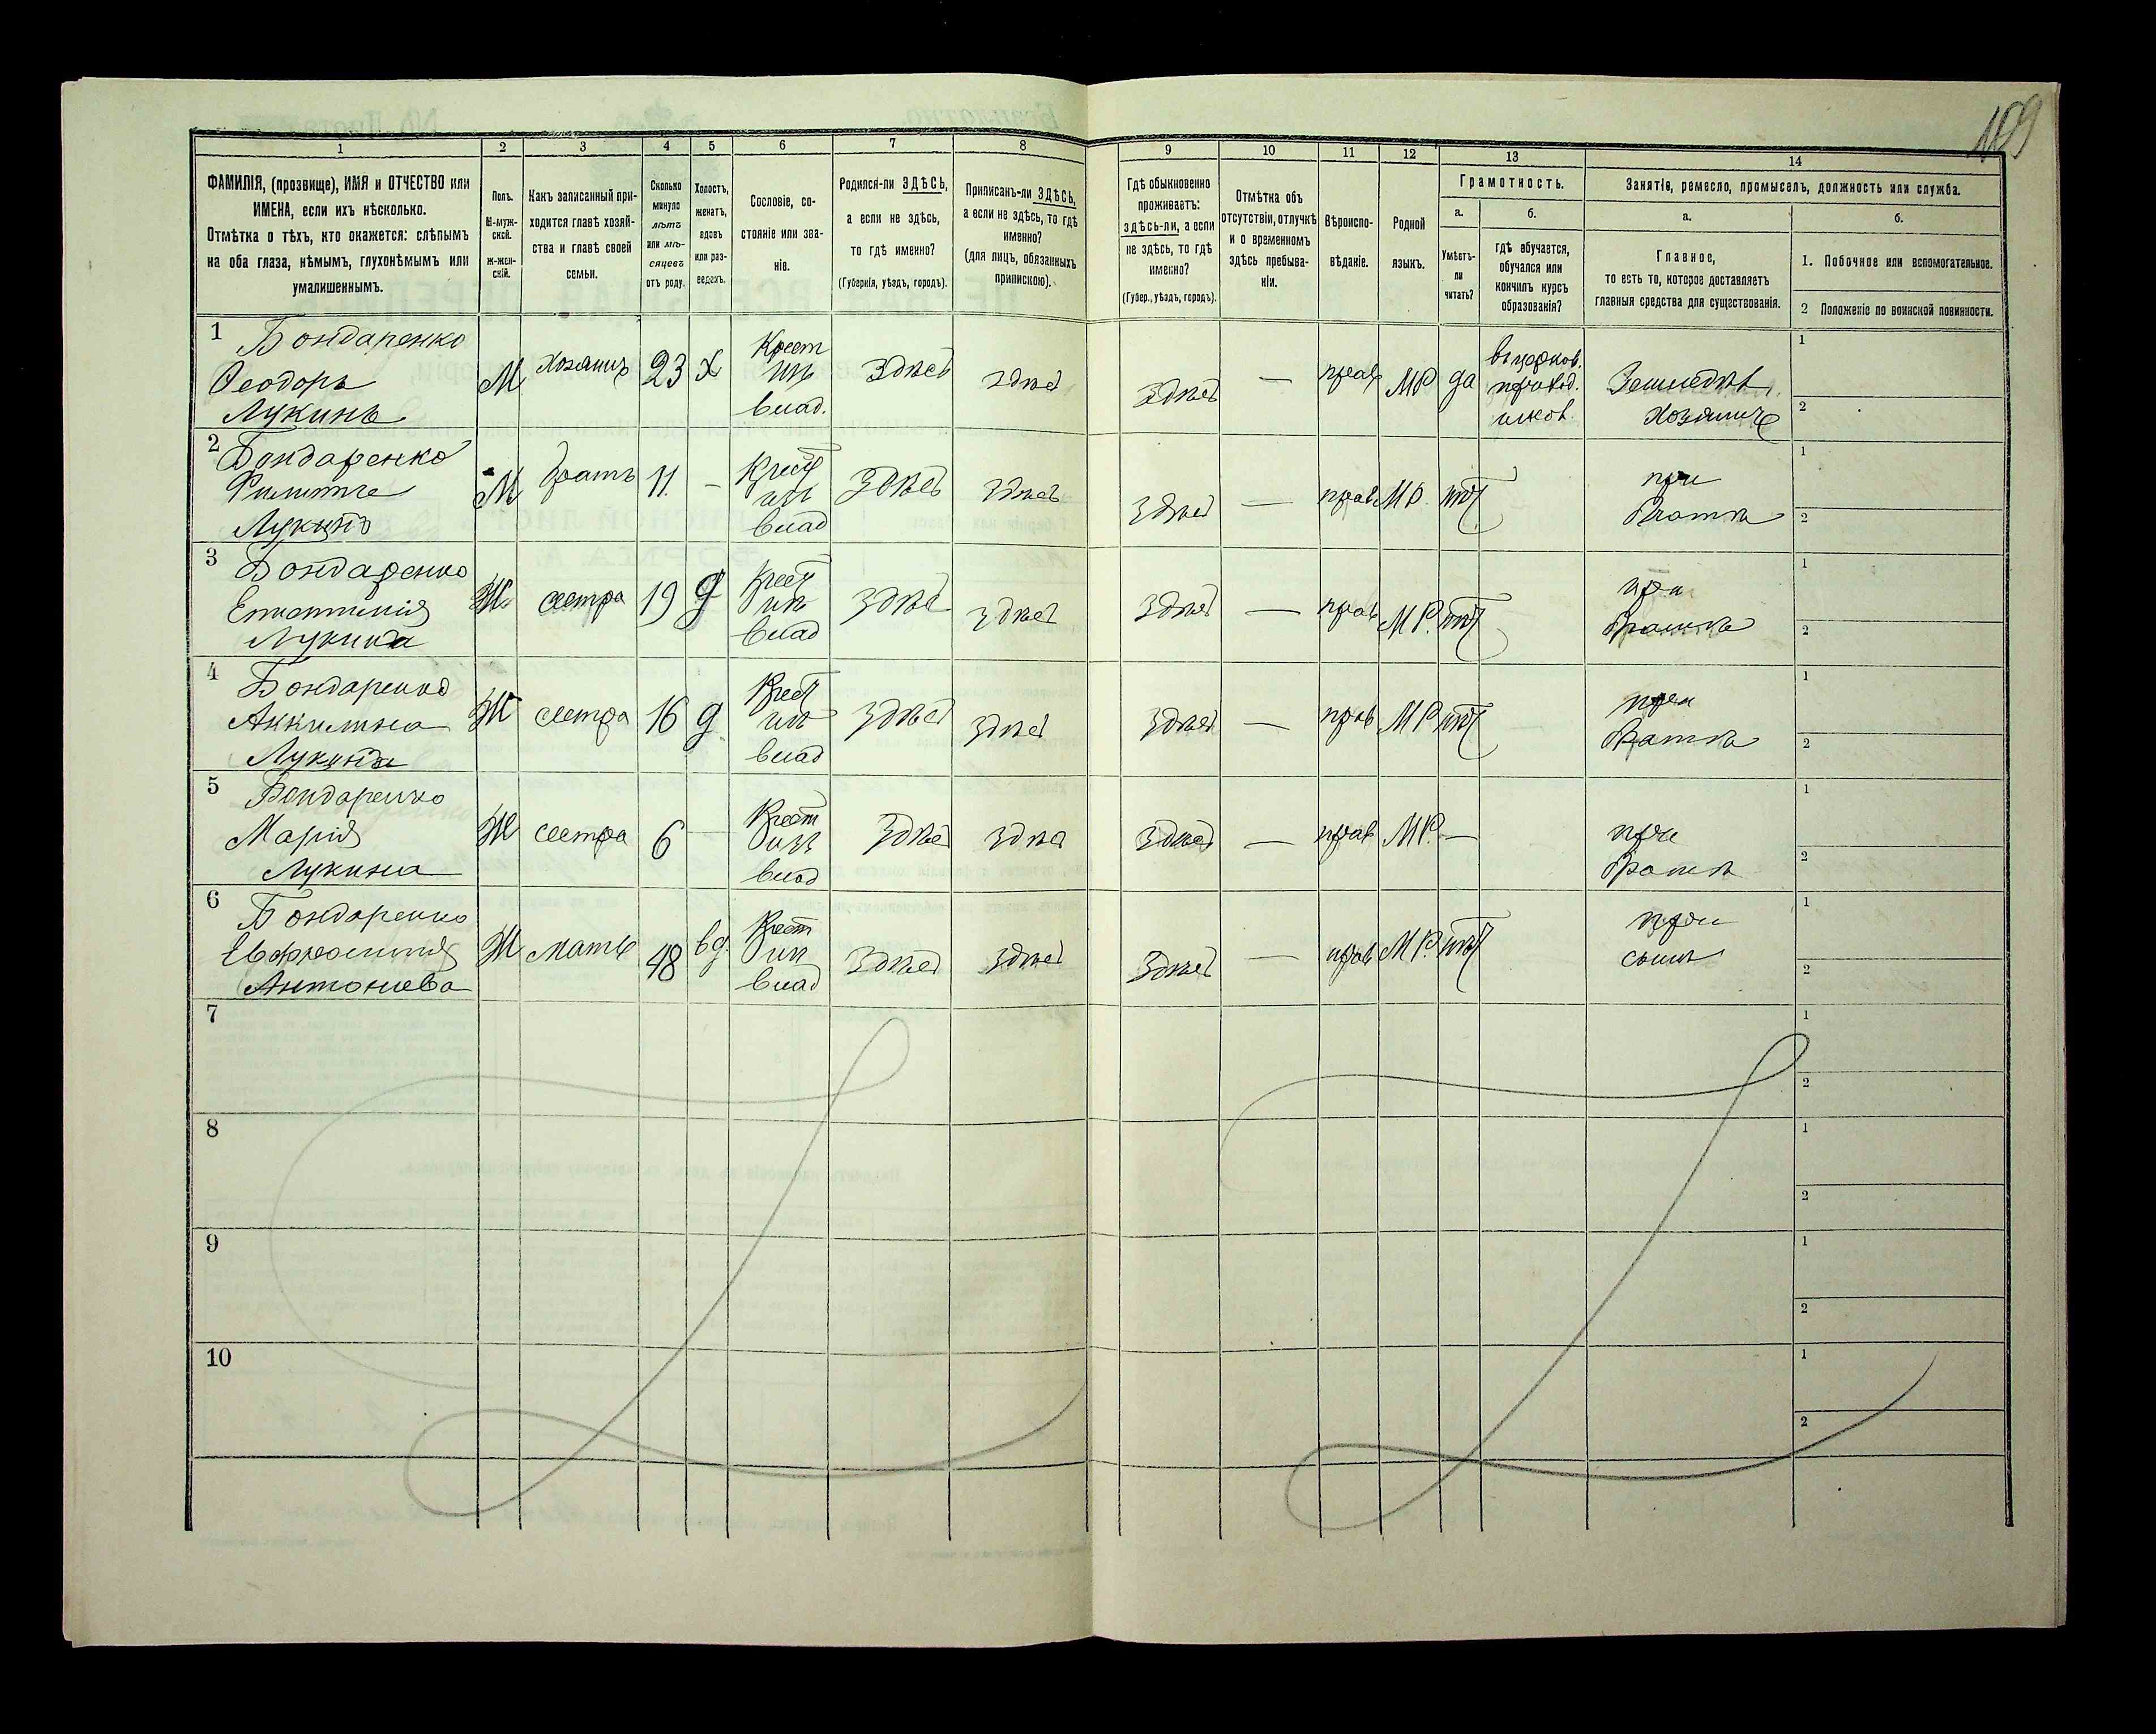 1 2 3 4 5 6 7 8 9 10 11 12 13 14
ФАМИЛІЯ, (прозвище), ИМЯ и ОТЧЕСТВО или
ИМЕНА, если ихъ нѣсколько.
Отмѣтка о тѣхъ, кто окажется: слѣпымъ
на оба глаза, нѣмымъ, глухонѣмымъ или
умалишеннымъ.
Полъ.
М-муж-
ской.
ж-жен-
скій.
Какъ записанный при-
ходится главѣ хозяй-
ства и главѣ своей
семьи.
Сколько
минуло
лѣтъ
или мѣ-
сяцевъ
отъ роду.
Холостъ,
женатъ,
вдовъ
или раз-
веденъ.
Сословіе, со-
стояніе или зва-
ніе.
Родился-ли ЗДѢСЬ,
а если не здѣсь,
то гдѣ именно?
(Губернія, уѣздъ, городъ).
Приписанъ-ли ЗДѢСЬ,
а если не здѣсь, то гдѣ
именно?
(для лицъ, обязанныхъ
припискою).
Гдѣ обыкновенно
проживаетъ:
здѣсь-ли, а если
не здѣсь, то гдѣ
именно?
(Губер., уѣздъ, городъ).
Отмѣтка объ
отсутствіи, отлучкѣ
и о временномъ
здѣсь пребыва-
ніи.
Вѣроиспо-
вѣданіе.
Родной
языкъ.
Грамотность.
а.
Умѣетъ-
ли
читать?
б.
гдѣ обучается,
обучался или
кончилъ курсъ
образованія?
Занятіе, ремесло, промыселъ, должность или служба.
а.
Главное,
то есть то, которое доставляетъ
главныя средства для существованія.
б.
1. Побочное или вспомогательное.
2 Положеніе по воинской повинности.
1 Бондаренко
Ѳеодоръ
Лукинъ
М Хозяинъ 23 Х
Крест
изъ
влад.
здѣсь здѣсь здѣсь — прав МР да
въ церков.
приход.
школ.
Земледѣл.
Хозяинъ
1
2
2 Бондаренко
Филиппъ
Лукинъ
М братъ 11. —
Крест
изъ
влад
здѣсь здѣсь здѣсь — прав МР. нѣт
при
братѣ
1
2
3 Бондаренко
Лукина
Ж сестра 19 д
Крест
изъ
влад
здѣсь здѣсь здѣсь — прав МР. нѣт —
при
братѣ
1
2
4 Бондаренко
Аккилина
Лукина
Ж сестра 16 д
Крест
изъ
влад
здѣсь здѣсь здѣсь — прав МР нѣт —
при
братѣ
1
2
5 Бондаренко
Марія
Лукина
Ж сестра 6 —
Крест
изъ
влад
здѣсь здѣсь здѣсь — прав МР. —
при
братѣ
1
2
6 Бондаренко
Евфросинія
Антонова
Ж мать 48 вд.
Крест
изъ
влад
здѣсь здѣсь здѣсь — прав МР. нѣт
при
сынѣ
1
2
7
1
2
8
1
2
9
1
2
10
1
2